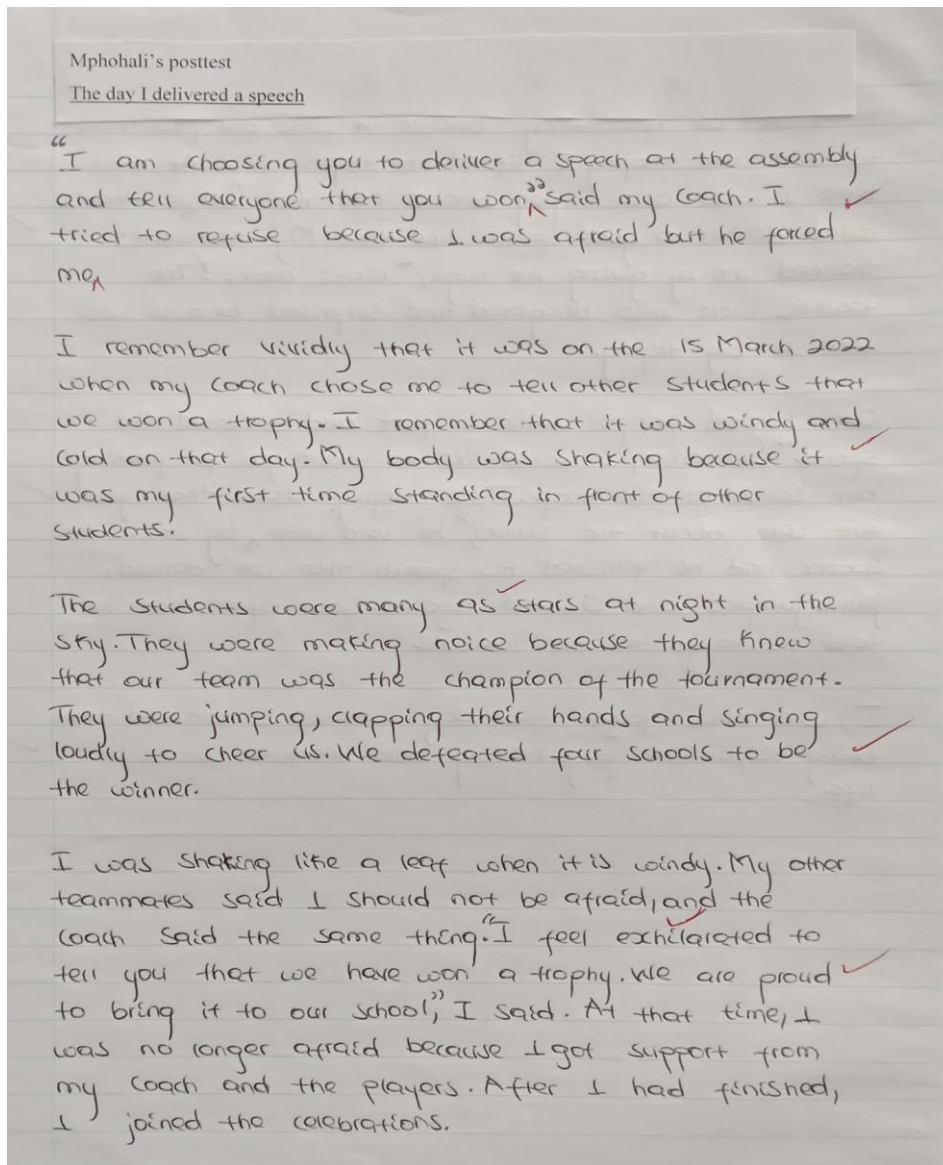 Mphohali's posttest
The day I delivered a speech
"I am choosing you to deliver a speech at the assembly
and tell everyone that you won," said my coach. I
tried to refuse because I was afraid but he forced
me
I remember vividly that it was on the 15 March 2022
when my coach chose me to tell other students that
we won a trophy. I remember that it was windy and
cold on that day. My body was shaking because it
was my first time standing in front of other
students.
The students were many as stars at night in the
sky. They were making noice because they knew
that our team was the champion of the tournament.
They were jumping, clapping their hands and singing
loudly to cheer us. We defeated four schools to be
the winner.
I was shaking like a leaf when it is windy. My other
teammates said I should not be afraid, and the
coach said the same thing. "I feel exhilarated to
tell you that we have won a trophy. We are proud
to bring it to our school", I said. At that time, I
was no longer afraid because I got support from
my coach and the players. After I had finished,
I joined the celebrations.